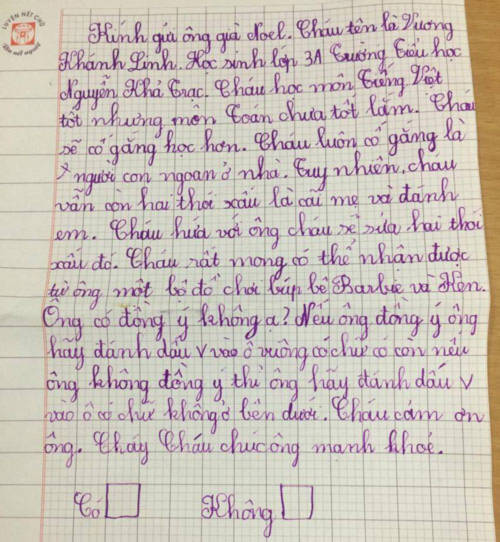 LUYỆN NÉT CHỮ
Rèn nết người
Kính gửi ông già Noel. Cháu tên là Vương
Khánh Linh. Học sinh lớp 3A Trường Tiểu học
Nguyễn Khả Trạc. Cháu học môn Tiếng Việt
tốt nhưng môn Toán chưa tốt lắm. Cháu
sẽ cố gắng học hơn. Cháu luôn cố gắng là
người con ngoan ở nhà. Tuy nhiên, cháu
vẫn còn hai thói xấu là cãi mẹ và đánh
em. Cháu hứa với ông cháu sẽ sửa hai thói
xấu đó. Cháu rất mong có thể nhân được
từ ông một bộ đồ chơi búp bê Barbie và Kên.
Ông có đồng ý không ạ? Nếu ông đồng ý ông
hãy đánh dấu v vào ô vuông có chữ có còn nếu
ông không đồng ý thì ông hãy đánh dấu v
vào ô có chữ không ở bên dưới. Cháu cám ơn
ông. Cháu chúc ông mạnh khoẻ.
Có Không